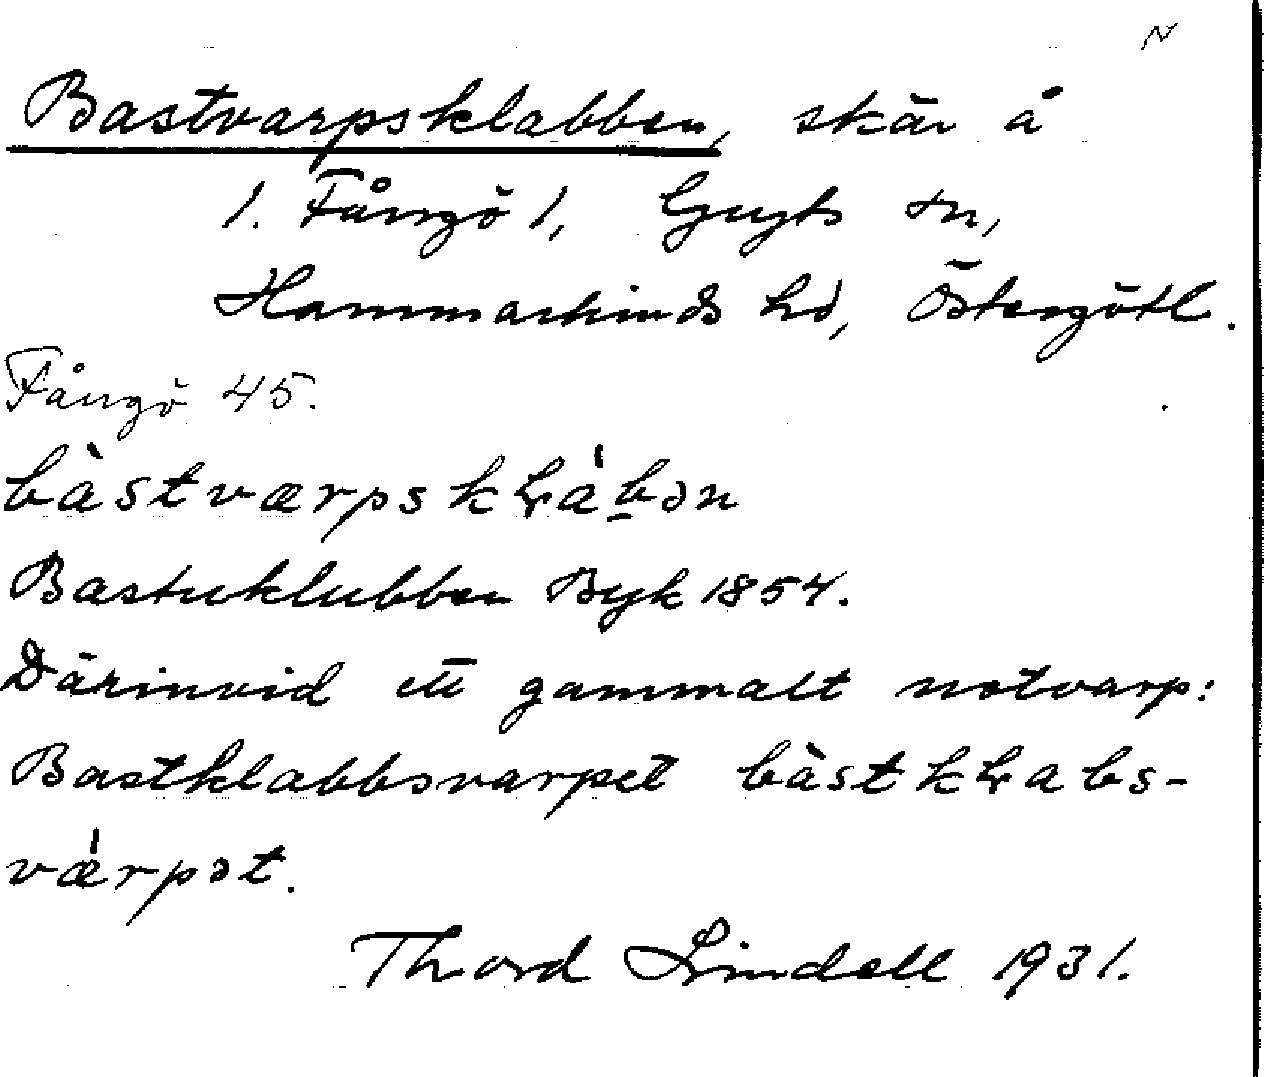 N
Bastvarpsklabben, skär å
1. Fångö 1, Gryts sn,
Hammarkinds hd, Östergötl.
Fångö 45.
bàstværpskⱡáb̠ən
Bastuklubben Byk 1854.
Därinvid ett gammalt notvarp:
Bastklabbsvarpet bàstkⱡabs-
vǽrpət.
Thord Lindell 1931.